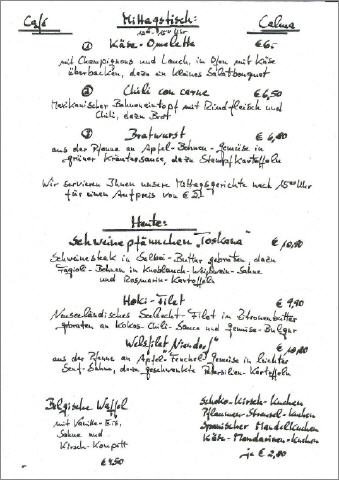 Café Mittagstisch: Calma
12⁰⁰-15⁰⁰ Uhr
① Käse-Omelette €6,-
mit Champignons und Lauch, im Ofen mit Käse
überbacken, dazu ein kleines Salatbouquet
② Chili con carne €6,50
Mexikanischer Bohneneintopf mit Rindfleisch und
Chili, dazu Brot
③ Bratwurst € 6,80
aus der Pfanne an Apfel-Bohnen-Gemüse in
grüner Kräutersauce, dazu Stampfkartoffeln
Wir servieren Ihnen unsere Mittagsgerichte nach 15⁰⁰ Uhr
für einen Aufpreis von
Heute:
Schweinepfännchen "Toskana" € 10,80
Schweinesteak in Salbei-Butter gebraten, dazu
Fagioli-Bohnen in Knoblauch-Weißwein-Sahne
und Rosmarin-Kartoffeln
Hoki-Filet € 9,90
Neuseeländisches Seehecht-Filet in Zitronenbutter
gebraten an Kokos-Chili-Sauce und Gemüse-Bulgur
Welsfilet "Niendorf" € 10,80
aus der Pfanne an Apfel-Fenchel-Gemüse in leichter
Senf-Sahne, dazu geschwenkte Petersilien-Kartoffeln
Belgische Waffel
mit Vanille-Eis,
Sahne und
Kirsch-Kompott
€ 4,50
Schoko-Kirsch-Kuchen
Pflaumen-Streusel-Kuchen
Spanischer Mandelkuchen
Käse-Mandarinen-Kuchen
je € 2,80